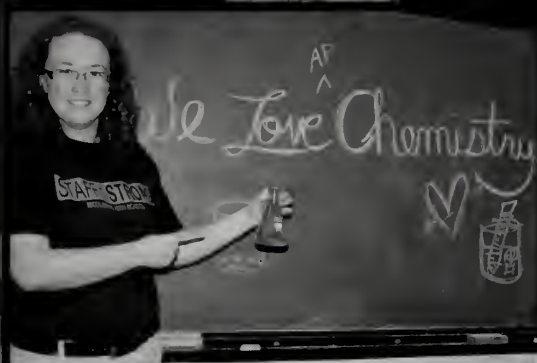 AP
We Love Chemistry
STAFF STRONG